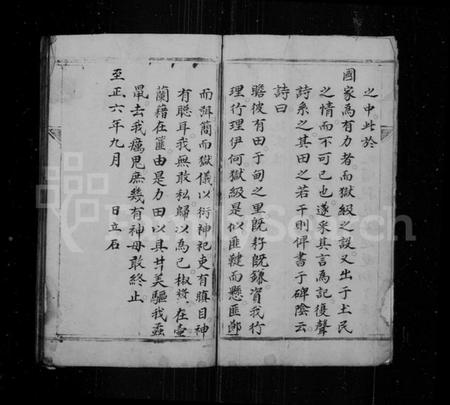 之中此於
國家為有力者而獄級之設又出于土民
之情而不可已也遂采其言為記復聲
詩系之其田之若干則俾書于碑陰云
詩曰
瞻彼有田于甸之里既籽既鎌資我行
理行理伊何獄級是似匪鞬而懸匪鄭
而弭蕳而獄儀以衎神祀吏有瞋目神
有聰耳我無敢私歸以為已椒漿在壺
蘭藉在篚由是力田以其井美驅我
鼠去我癘鬼庶幾有神毋敢終止
至正六年九月 日立石
FamilySearch